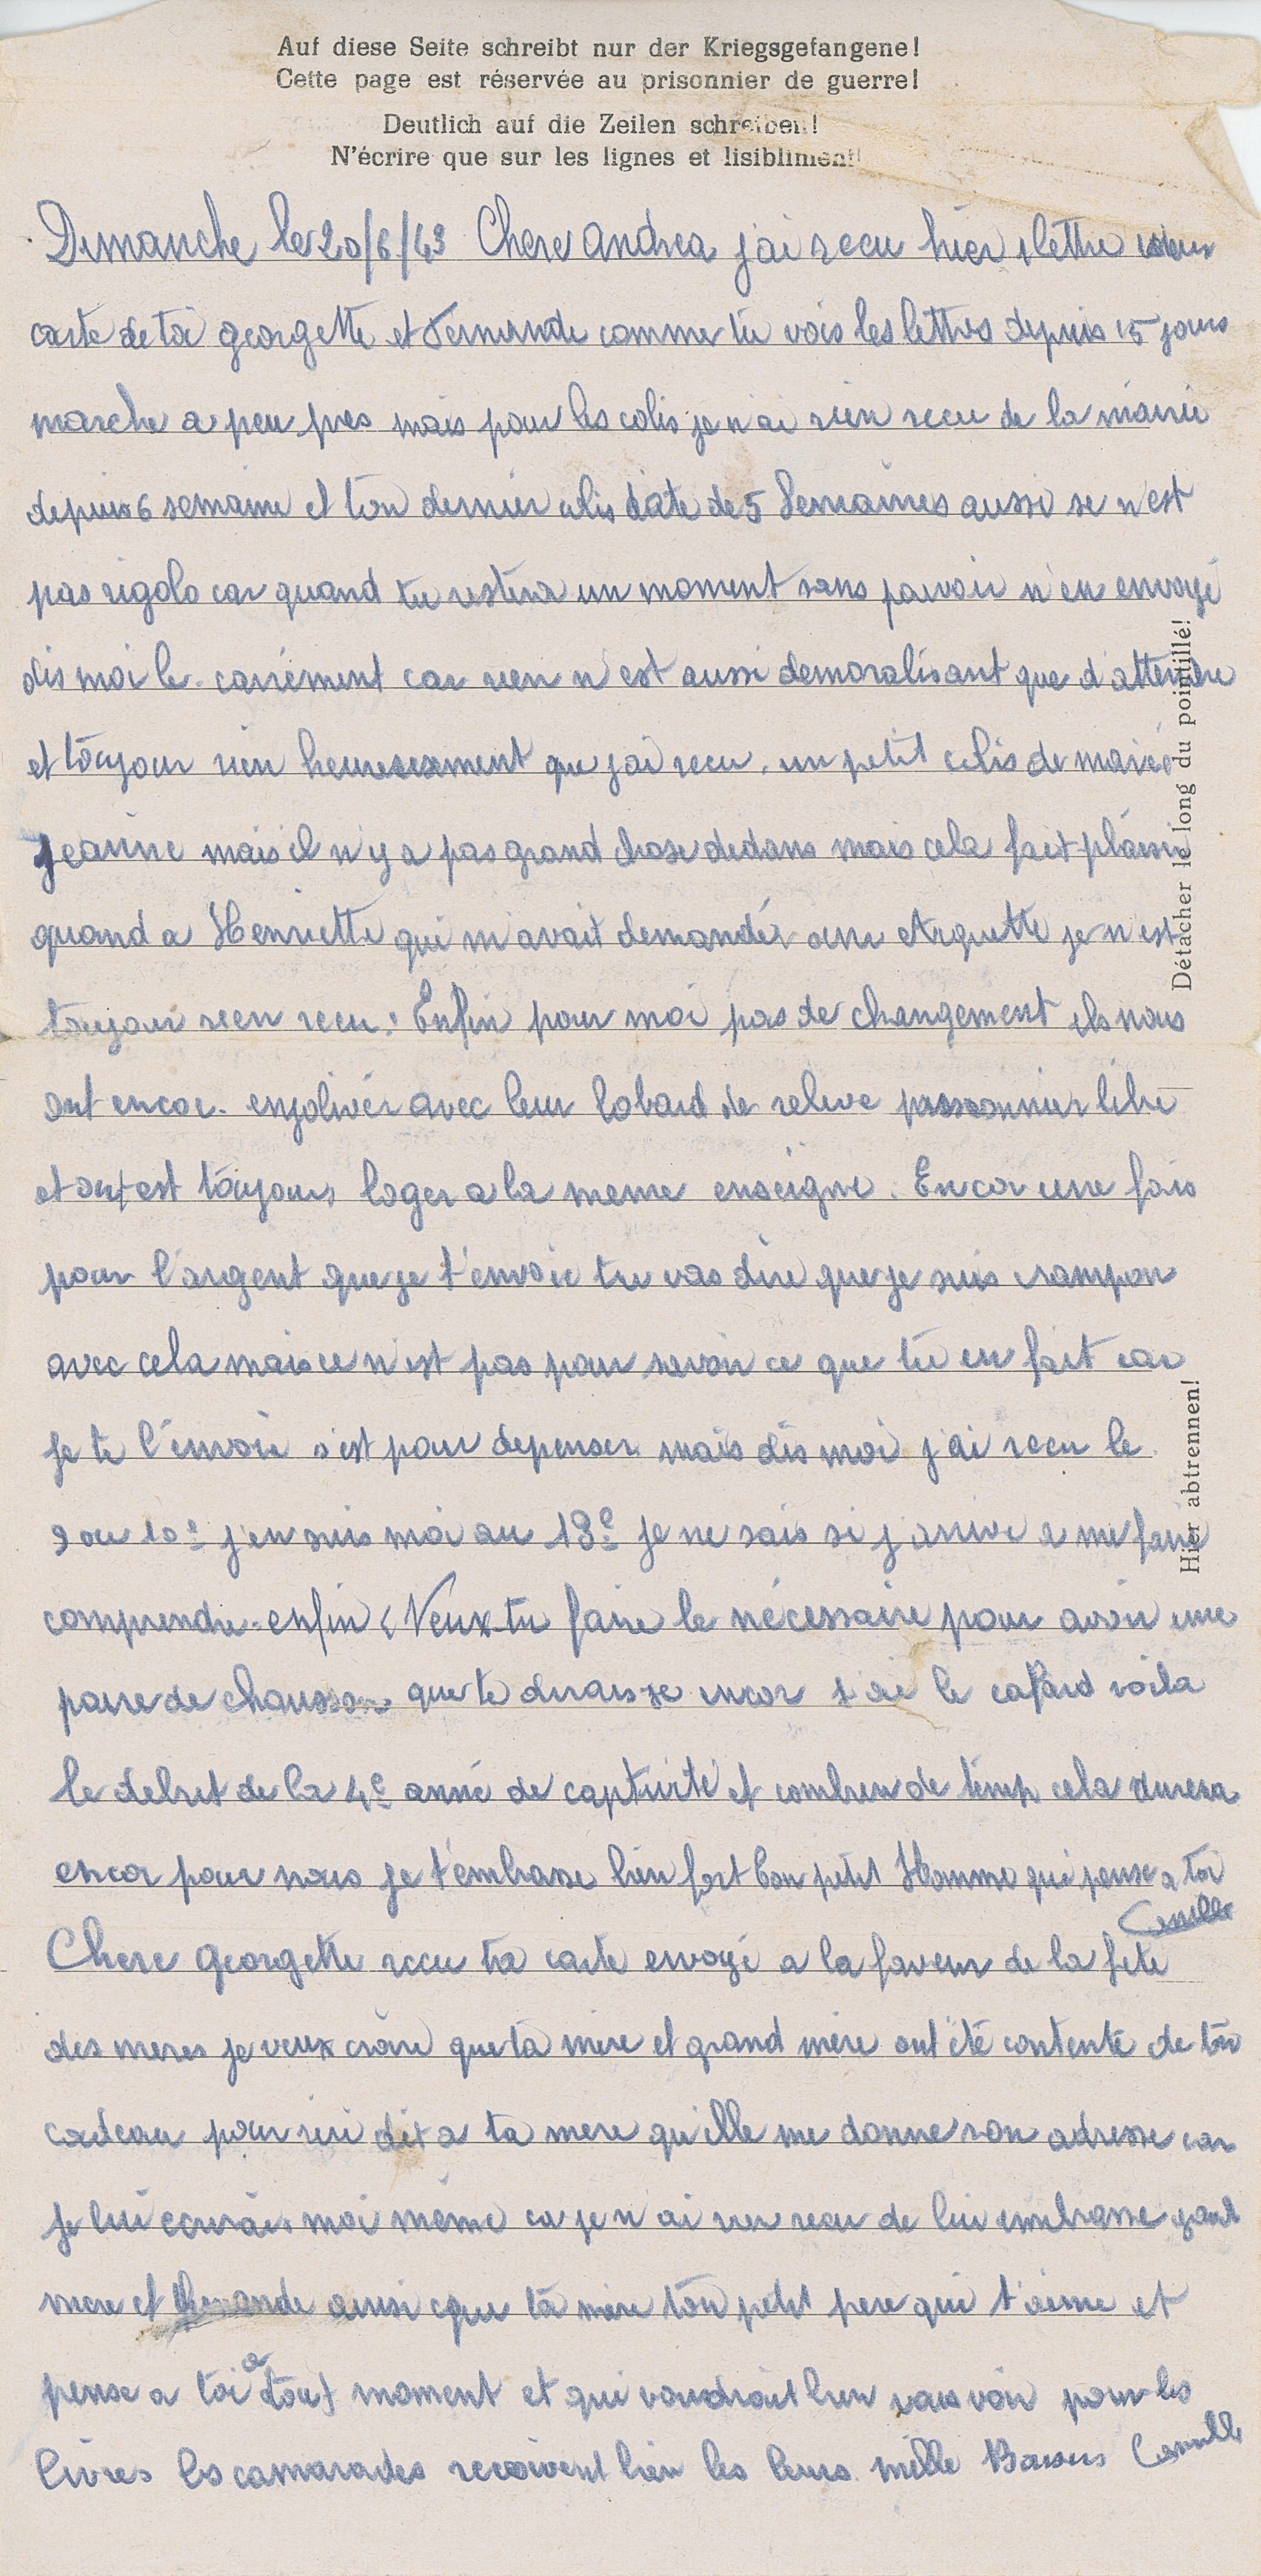 Auf diese Seite schreibt nur der Kriegsgefangene!
Cette page est réservée au prisonnier de guerre!
Deutlich auf die Zeilen schreiben!
N'écrire que sur les lignes et lisibliment!
Dimanche le 20/6/43 Chere Andrea j'ai recu hier 1 lettre
carte de toi georgette et Fernande comme tu vois les lettres depuis 15 jours
marche a peu pres mais pour les colis je n'ai rien recu de la mairie
depuis 6 semaine et ton dernier colis date de 5 Semaines aussi se n'est
pas rigolo car quand tu restera un moment sans pouvoir n'en envoyé
dis moi le carrément car rien n'est aussi demoralisant que d'attendre
et toujour rien heureusement que j'ai recu un petit colis de marie
jeanine mais il n'y a pas grand chose dedans mais cela fait plaisir
quand a Henriette qui m'avait demandér une etiquette je n'est
toujour rien recu. Enfin pour moi pas de changement ils nous
ont encor enjolivér avec leur bobard de releve prisonnier libre
et ont est toujours loger a la meme enseigne. Encor une fois
pour l'argent que je t'envoie tu vas dire que je suis crampon
avec cela mais ce n'est pas pour savoir ce que tu en fait car
je te l'envoie s'est pour depenser mais dis moi j'ai recu le
9 ou 10e j'en suis moi au 13e je ne sais si j'arrive a me faire
comprendre enfin Veux-tu faire le nécessaire pour avoir une
paire de chaussons que te dirais-je encor j'ai le cafard voila
le debut de la 4e anné de captivité et combien de temp cela durera
encor pour nous je t'embrasse bien fort ton petit Homme qui pense a toi
Camille
Chere Georgette recu ta carte envoyé a la faveur de la fete
des meres je veux croire que ta mère et grand mère ont été contente de ton
cadeau pour dit a ta mere quelle me donne son adresse car
je lui ecrirais moi même car je n'ai rien recu de lui embrasse grand
mere et Fernande ainsi que ta mère ton petit pere qui t'aime et
pense a toi a tout moment et qui voudrait bien vous voir pour les
livres les camarades recoivent bien les leurs. mille Baisers Camille
Détacher le long du pointillé!
Hier abtrennen!